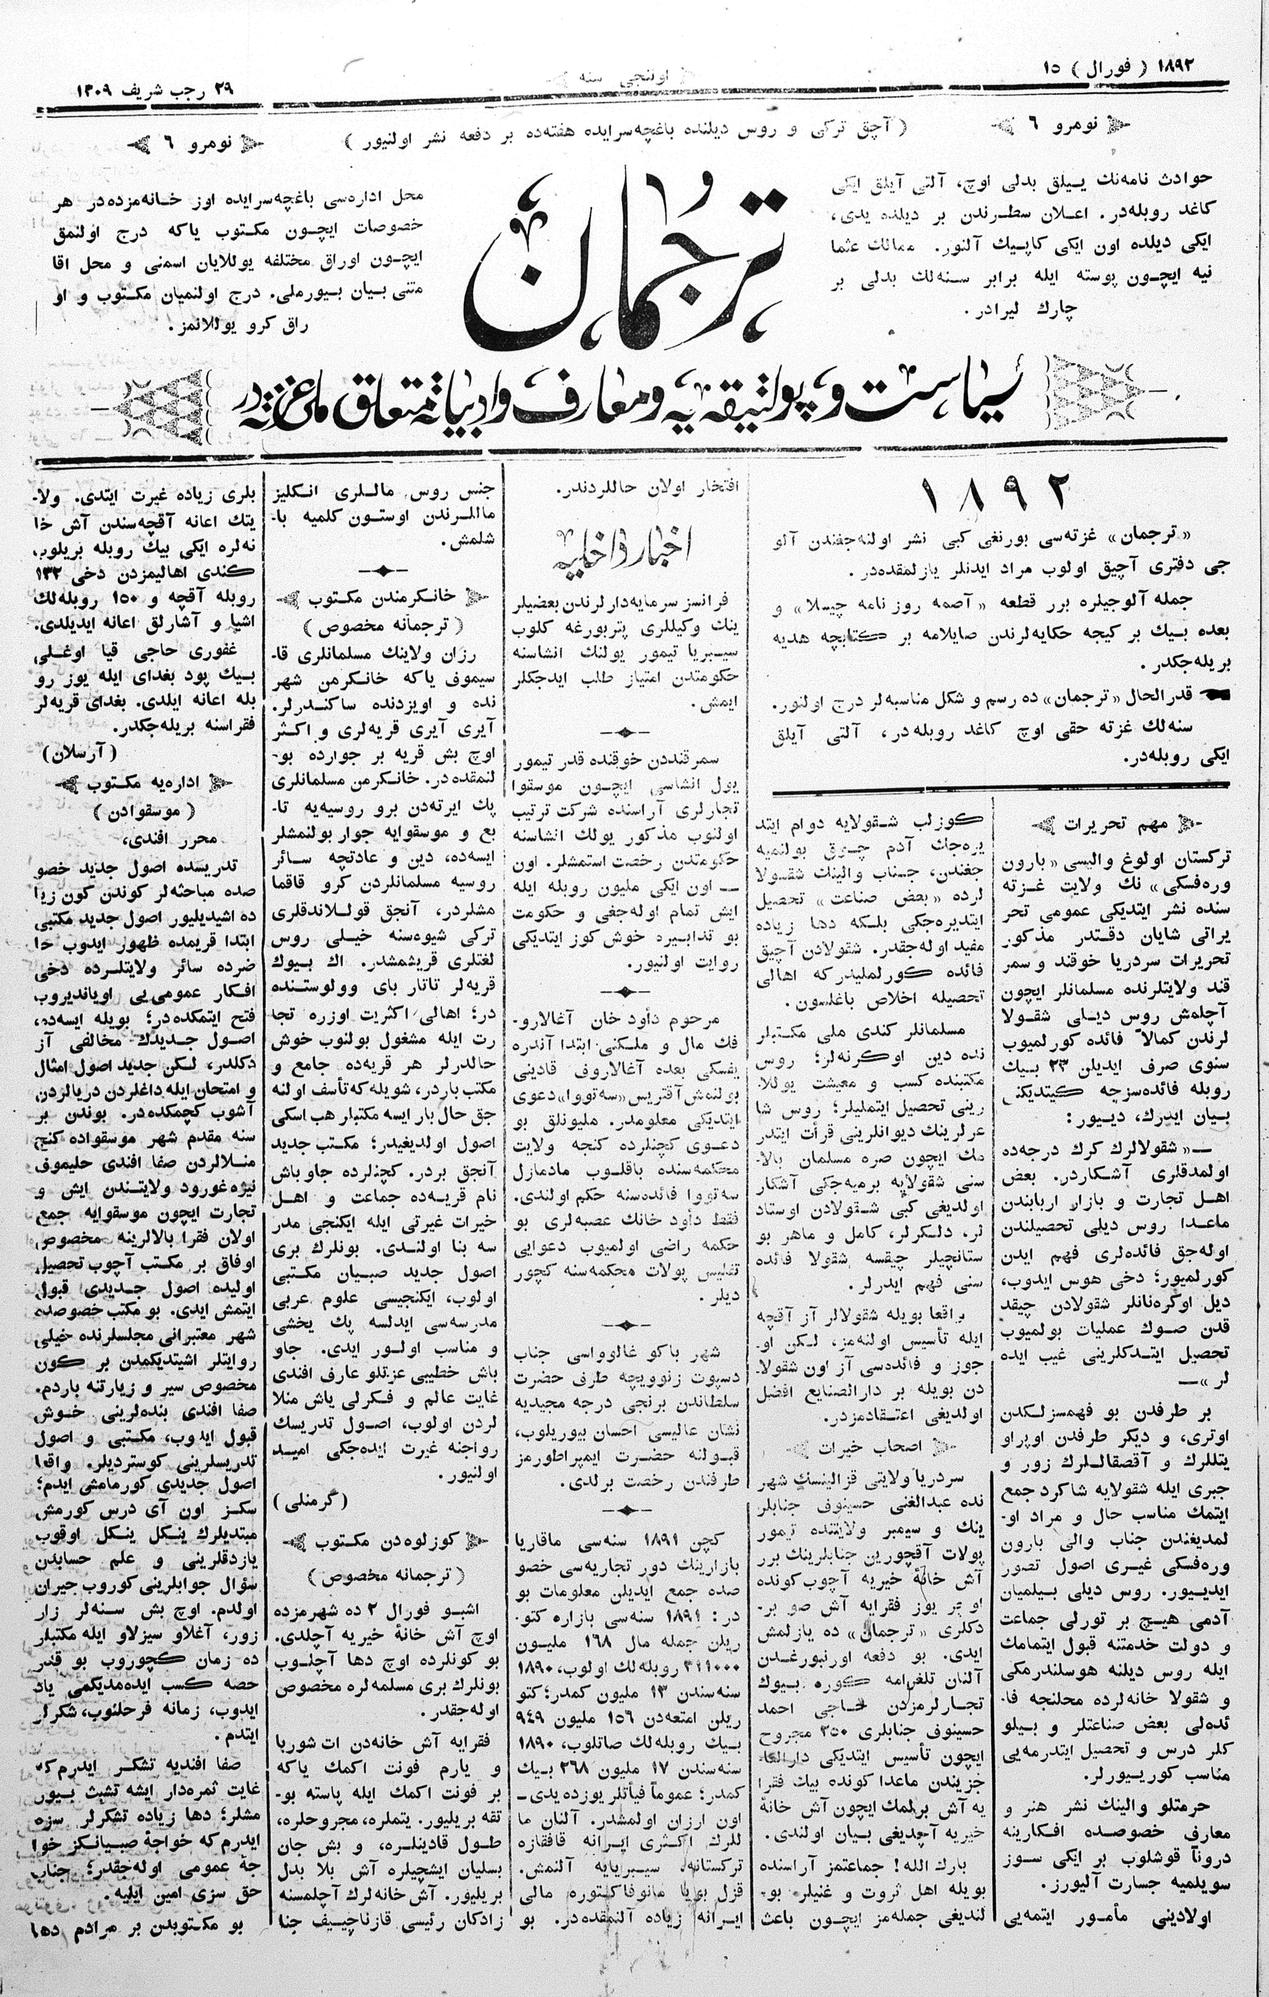 ١٨٩٢ ( فورال ) ١٥
اولنجی سنه
٢٩ رجب شریف ١٣٠٩
نومرو ٦
( آچق ترکی و روس دیلنده باغچه‌سرایده هفته‌ده بر دفعه نشر اولنیور )
نومرو ٦
حوادث نامه‌نك ییلق بدلی اوچ، آلتی آیلق ایکی
کاغد روبله‌در. اعلان سطرندن بر دیلده یدی،
ایکی دیلده اون ایکی کاپیك آلنور. ممالك عثما
نیه ایچون پوسته ایله برابر سنه‌لك بدلی بر
چارك لیرادر.
ترجمان
محل اداره‌سی باغچه‌سرایده اوز خانه‌مزده‌در هر
خصوصات ایچون مکتوب یاکه درج اولنمق
ایچون اوراق مختلفه یوللایان اسمنی و محل اقا
متنی بیان بیورملی. درج اولنمیان مکتوب و او
راق کرو یوللانمز.
سیاست و پولتیقه‌یه و معارف و ادبیاته متعلق ملی غزته‌در
١٨٩٢
«ترجمان» غزته‌سی بورنغی کبی نشر اولنه‌جغندن آلو
جی دفتری آچیق اولوب مراد ایدنلر یازلمقده‌در.
جمله آلوجیلره برر قطعه «آصمه روز نامه چیسلا» و
بعده بیك بر کیجه حکایه‌لرندن صایلامه بر کتابچه هدیه
بریله‌جکدر.
قدرالحال «ترجمان» ده رسم و شکل مناسبه‌لر درج اولنور.
سنه‌لك غزته حقی اوچ کاغد روبله‌در، آلتی آیلق
ایکی روبله‌در.
مهم تحریرات
ترکستان اولوغ والیسی «بارون
وره‌فسکی» نك ولایت غزته
سنده نشر ایتدیکی عمومی تحر
یراتی شایان دقتدر مذکور
تحریرات سردریا خوقند و سمر
قند ولایتلرنده مسلمانلر ایچون
آچلمش روس دیلی شقولا
لرندن کمالاً فائده کورلمیوب
سنوی صرف ایدیلن ٢٣ بیك
روبله فائده‌سزجه کیتدیکنی
بیان ایدرك، دییور:
—«شقولالرك کرك درجه‌ده
اولمدقلری آشکاردر. بعض
اهل تجارت و بازار اربابندن
ماعدا روس دیلی تحصیلندن
اوله‌جق فائده‌لری فهم ایدن
کورلمیور؛ دخی هوس ایدوب،
دیل اوکره‌نانلر شقولادن چیقد
قدن صوك عملیات بولمیوب
تحصیل ایتدکلرینی غیب ایده
لر»—
بر طرفدن بو فهمسزلکدن
اوتری، و دیکر طرفدن اوپراو
یتللرك و آقصقاللرك زور و
جبری ایله شقولایه شاکرد جمع
ایتمك مناسب حال و مراد او-
لمدیغندن جناب والی بارون
وره‌فسکی غیری اصول تصور
ایدییور. روس دیلی بیلمیان
آدمی هیچ بر تورلی جماعت
و دولت خدمتنه قبول ایتمامك
ایله روس دیلنه هوسلندرمکی
و شقولا خانه‌لرده محلنجه فا-
ئده‌لی بعض صناعتلر و بیلو
کلر درس و تحصیل ایتدرمه‌یی
مناسب کورییورلر.
حرمتلو والینك نشر هنر و
معارف خصوصده افکارینه
دروناً قوشلوب بر ایکی سوز
سویلمیه جسارت آلیورز.
اولادینی مأمور ایتمه‌یی
کوزلب شقولایه دوام ایتد
یره‌جك آدم چوق بولنمیه
جغندن، جناب والینك شقولا
لرده «بعض صناعت» تحصیل
ایتدیره‌جکی بلکه دها زیاده
مفید اوله‌جقدر. شقولادن آچیق
فائده کورلملیدرکه اهالی
تحصیله اخلاص باغلسون.
مسلمانلر کندی ملی مکتبلر
نده دین اوکرنه‌لر؛ روس
مکتبنده کسب و معیشت یوللا-
رینی تحصیل ایتملیلر؛ روس شا
عرلرینك دیوانلرینی قرأت ایتدر
مك ایچون صره مسلمان بالا-
سنی شقولایه برمیه‌جکی آشکار
اولدیغی کبی شقولادن اوستاد
لر، دلکرلر، کامل و ماهر بو
ستانچیلر چیقسه شقولا فائده
سنی فهم ایدرلر.
واقعا بویله شقولالر آز آقچه
ایله تأسیس اولنه‌مز، لکن او-
جوز و فائده‌سی آز اون شقولا-
دن بویله بر دارالصنایع افضل
اولدیغی اعتقادمزدر.
اصحاب خیرات
سردریا ولایتی قزالینسك شهر
نده عبدالغنی حسینوف جنابلر
ینك و سیمبر ولایتنده تیمور
پولات آقچورین جنابلرینك برر
آش خانهٔ خیریه آچوب کونده
اوچر یوز فقرایه آش صو بر-
دکلری «ترجمان» ده یازلمش
ایدی. بو دفعه اورنبورغدن
آلنان تلغرامه کوره بیوك
تجارلرمزدن حاجی احمد
حسینوف جنابلری ٢٥٠ مجروح
ایچون تأسیس ایتدیکی دارالعا
جزیندن ماعدا کونده بیك فقرا
یه آش برلمك ایچون آش خانهٔ
خیریه آچدیغی بیان اولندی.
بارك الله! جماعتمز آراسنده
بویله اهل ثروت و غنیلر بو-
لندیغی جمله‌مز ایچون باعث
افتخار اولان حاللردندر.
اخبار داخلیه
فرانسز سرمایه‌دارلرندن بعضیلر
ینك وکیللری پتربورغه کلوب
سیبریا تیمور یولنك انشاسنه
حکومتدن امتیاز طلب ایدجکلر
ایمش.
سمرقنددن خوقنده قدر تیمور
یول انشاسی ایچون موسقوا
تجارلری آراسنده شرکت ترتیب
اولنوب مذکور یولك انشاسنه
حکومتدن رخصت استمشلر. اون
— اون ایکی ملیون روبله ایله
ایش تمام اوله‌جغی و حکومت
بو تدابیره خوش کوز ایتدیکی
روایت اولنیور.
مرحوم دأود خان آغالارو-
فك مال و ملکنی ابتدا آندره
یفسکی بعده آغالاروف قادینی
بولنمش آقتریس «سه‌تووا» دعوی
ایتدیکی معلومدر. ملیونلق بو
دعوی کچنلرده کنجه ولایت
محکمه‌سنده باقلوب مادمازل
سه‌تووا فائده‌سنه حکم اولندی.
فقط دأود خانك عصبه‌لری بو
حکمه راضی اولمیوب دعوایی
تفلیس پولات محکمه‌سنه کچور
دیلر.
شهر باکو غالوواسی جناب
دسپوت زنوویچه طرفی حضرت
سلطاندن برنجی درجه مجیدیه
نشان عالیسی احسان بیوریلوب،
قبولنه حضرت ایمپراطورمز
طرفندن رخصت برلدی.
کچن ١٨٩١ سنه‌سی ماقاریا
بازارینك دور تجاریه‌سی خصو
صده جمع ایدیلن معلومات بو
در: ١٨٩١ سنه‌سی بازاره کتو-
ریلن جمله مال ١٦٨ ملیون
روبله‌لك اولوب، ١٨٩٠
سنه‌سندن ١٣ ملیون کمدر؛ کتو
ریلن امتعه‌دن ١٥٦ ملیون ٩٤٩
بیك روبله‌لك صاتلوب، ١٨٩٠
سنه‌سندن ١٧ ملیون ٢٦٨ بیك
کمدر؛ عموماً فیأتلر یوزده یدی-
اون ارزان اولمشدر. آلنان ما
للرك اکثری ایرانه قافقازه
ترکستانه سیبریایه آلنمش.
قزل بویا مانوفاکتوره مالی
ایرانه زیاده آلنمقده‌در. بو
جنس روس ماللری انکلیز
ماللرندن اوستون کلمیه با-
شلمش.
خانکرمندن مکتوب
( ترجمانه مخصوص )
رزان ولاینك مسلمانلری قا-
سیموف یاکه خانکرمن شهر
نده و اویزدنده ساکندرلر.
آیری آیری قریه‌لری و اکثر
اوچ بش قریه بر جوارده بو-
لنمقده‌در. خانکرمن مسلمانلری
پك ایرته‌دن برو روسیه‌یه تا-
بع و موسقوایه جوار بولنمشلر
ایسه‌ده، دین و عادتچه سائر
روسیه مسلمانلردن کرو قاقما
مشلردر، آنجق قوللاندقلری
ترکی شیوه‌سنه خیلی روس
لغتلری قریشمشدر. اك بیوك
قریه‌لر تاتار بای وولوستنده
در؛ اهالی اکثریت اوزره تجا
رت ایله مشغول بولنوب خوش
حالدرلر هر قریه‌ده جامع و
مکتب باردر، شویله که تأسف اولنه
جق حال بار ایسه مکتبلر هب اسکی
اصول اولدیغیدر؛ مکتب جدید
آنجق بردر. کچنلرده جاوباش
نام قریه‌ده جماعت و اهل
خیرات غیرتی ایله ایکنجی مدر
سه بنا اولندی. بونلرك بری
اصول جدید صبیان مکتبی
اولوب، ایکنجیسی علوم عربی
مدرسه‌سی ایدلسه پك یخشی
و مناسب اولور ایدی. جاو
باش خطیبی عزتلو عارف افندی
غایت عالم و فکرلی یاش منلا
لردن اولوب، اصول تدریسك
رواجنه غیرت ایده‌جکی امید
اولنیور.
( کرمنلی )
کوزلوه‌دن مکتوب
( ترجمانه مخصوص )
اشبو فورال ٢ ده شهرمزده
اوچ آش خانهٔ خیریه آچلدی.
بو کونلرده اوچ دها آچلوب
بونلرك بری مسلمه‌لره مخصوص
اوله‌جقدر.
فقرایه آش خانه‌دن ات شوربا
و یارم فونت اکمك یاکه
بر فونت اکمك ایله پاسته بو-
تقه بریلیور. یتملره، مجروحلره،
طول قادینلره، و بش جان
بسلیان ایشچیلره آش بلا بدل
بریلیور. آش خانه‌لرك آچلمسنه
زادکان رئیسی قازناچییف جنا
بلری زیاده غیرت ایتدی. ولا-
یتك اعانه آقچه‌سندن آش خا
نه‌لره ایکی بیك روبله بریلوب،
کندی اهالیمزدن دخی ١٣٢
روبله آقچه و ١٥٠ روبله‌لك
اشیا و آشارلق اعانه ایدیلدی.
غفوری حاجی قیا اوغلی
بیك پود بغدای ایله یوز رو
بله اعانه ایلدی. بغدای قریه‌لر
فقراسنه بریله‌جکدر.
( آرسلان )
اداره‌یه مکتوب
( موسقوادن )
محرر افندی،
تدریسده اصول جدید خصو
صده مباحثه‌لر کوندن کون زیا
ده اشیدیلیور اصول جدید مکتبی
ابتدا قریمده ظهور ایدوب حا
ضرده سائر ولایتلرده دخی
افکار عمومی‌یی اویاندیروب
فتح ایتمکده‌در؛ بویله ایسه‌ده،
اصول جدیدك مخالفی آز
دکلدر، لکن جدید اصول امثال
و امتحان ایله داغلردن دریالردن
آشوب کچمکده‌در. بوندن بر
سنه مقدم شهر موسقواده کنج
منلالردن صفا افندی حلیموف
نیژه‌غورود ولایتندن ایش و
تجارت ایچون موسقوایه جمع
اولان فقرا بالالرینه مخصوص
اوفاق بر مکتب آچوب تحصیل
اولیده اصول جدیدی قبول
ایتمش ایدی. بو مکتب خصوصده
شهر معتبرانی مجلسلرنده خیلی
روایتلر اشیتدیکمدن بر کون
مخصوص سیر و زیارتنه باردم.
صفا افندی بنده‌لرینی خوش
قبول ایدوب، مکتبی و اصول
تدریسلرینی کوستردیلر. واقعا
اصول جدیدی کورمامش ایدم؛
سکز اون آی درس کورمش
مبتدیلرك ینکل ینکل اوقوب
یازدقلرینی و علم حسابدن
سؤال جوابلرینی کوروب حیران
اولدم. اوچ بش سنه‌لر زار
زور، آغلاو سیزلاو ایله مکتبلر
ده زمان کچوروب بو قدر
حصه کسب ایده‌مدیکمی یاد
ایدوب، زمانه فرحلنوب، شکرلر
ایتدم.
صفا افندیه تشکر ایدرم که
غایت ثمره‌دار ایشه تشبث بیور
مشلر؛ دها زیاده تشکرلر سزه
ایدرم که خواجهٔ صبیانکز خوا
جهٔ عمومی اوله‌جقدر؛ جناب
حق سزی امین ایلیه.
بو مکتوبدن بر مرادم دها